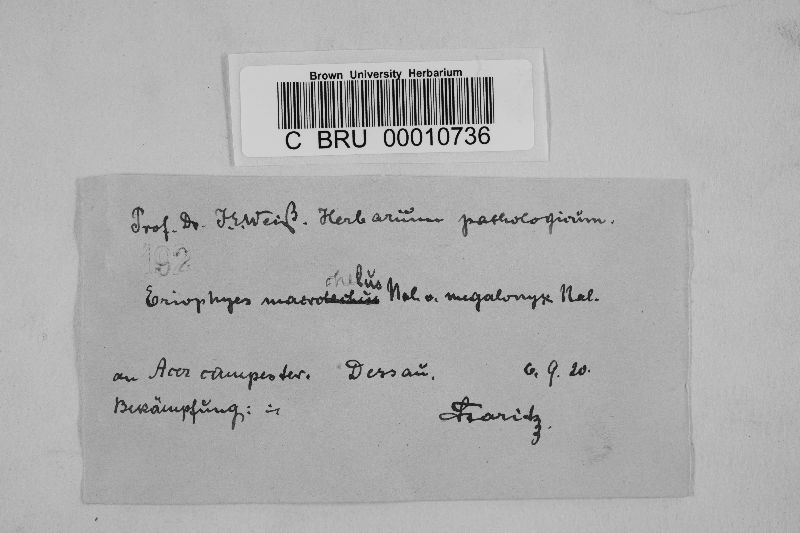 Brown University Herbarium
C BRU 00010736
Prof. Dr. J.E. Weiß. Herbarium pathologicum.
192
chelus
Eriophyes macro Nal. v. megalonyx Nal.
an Acer campester. Dessau. 6. 9. 20.
Bekämpfung: :
Staritz.